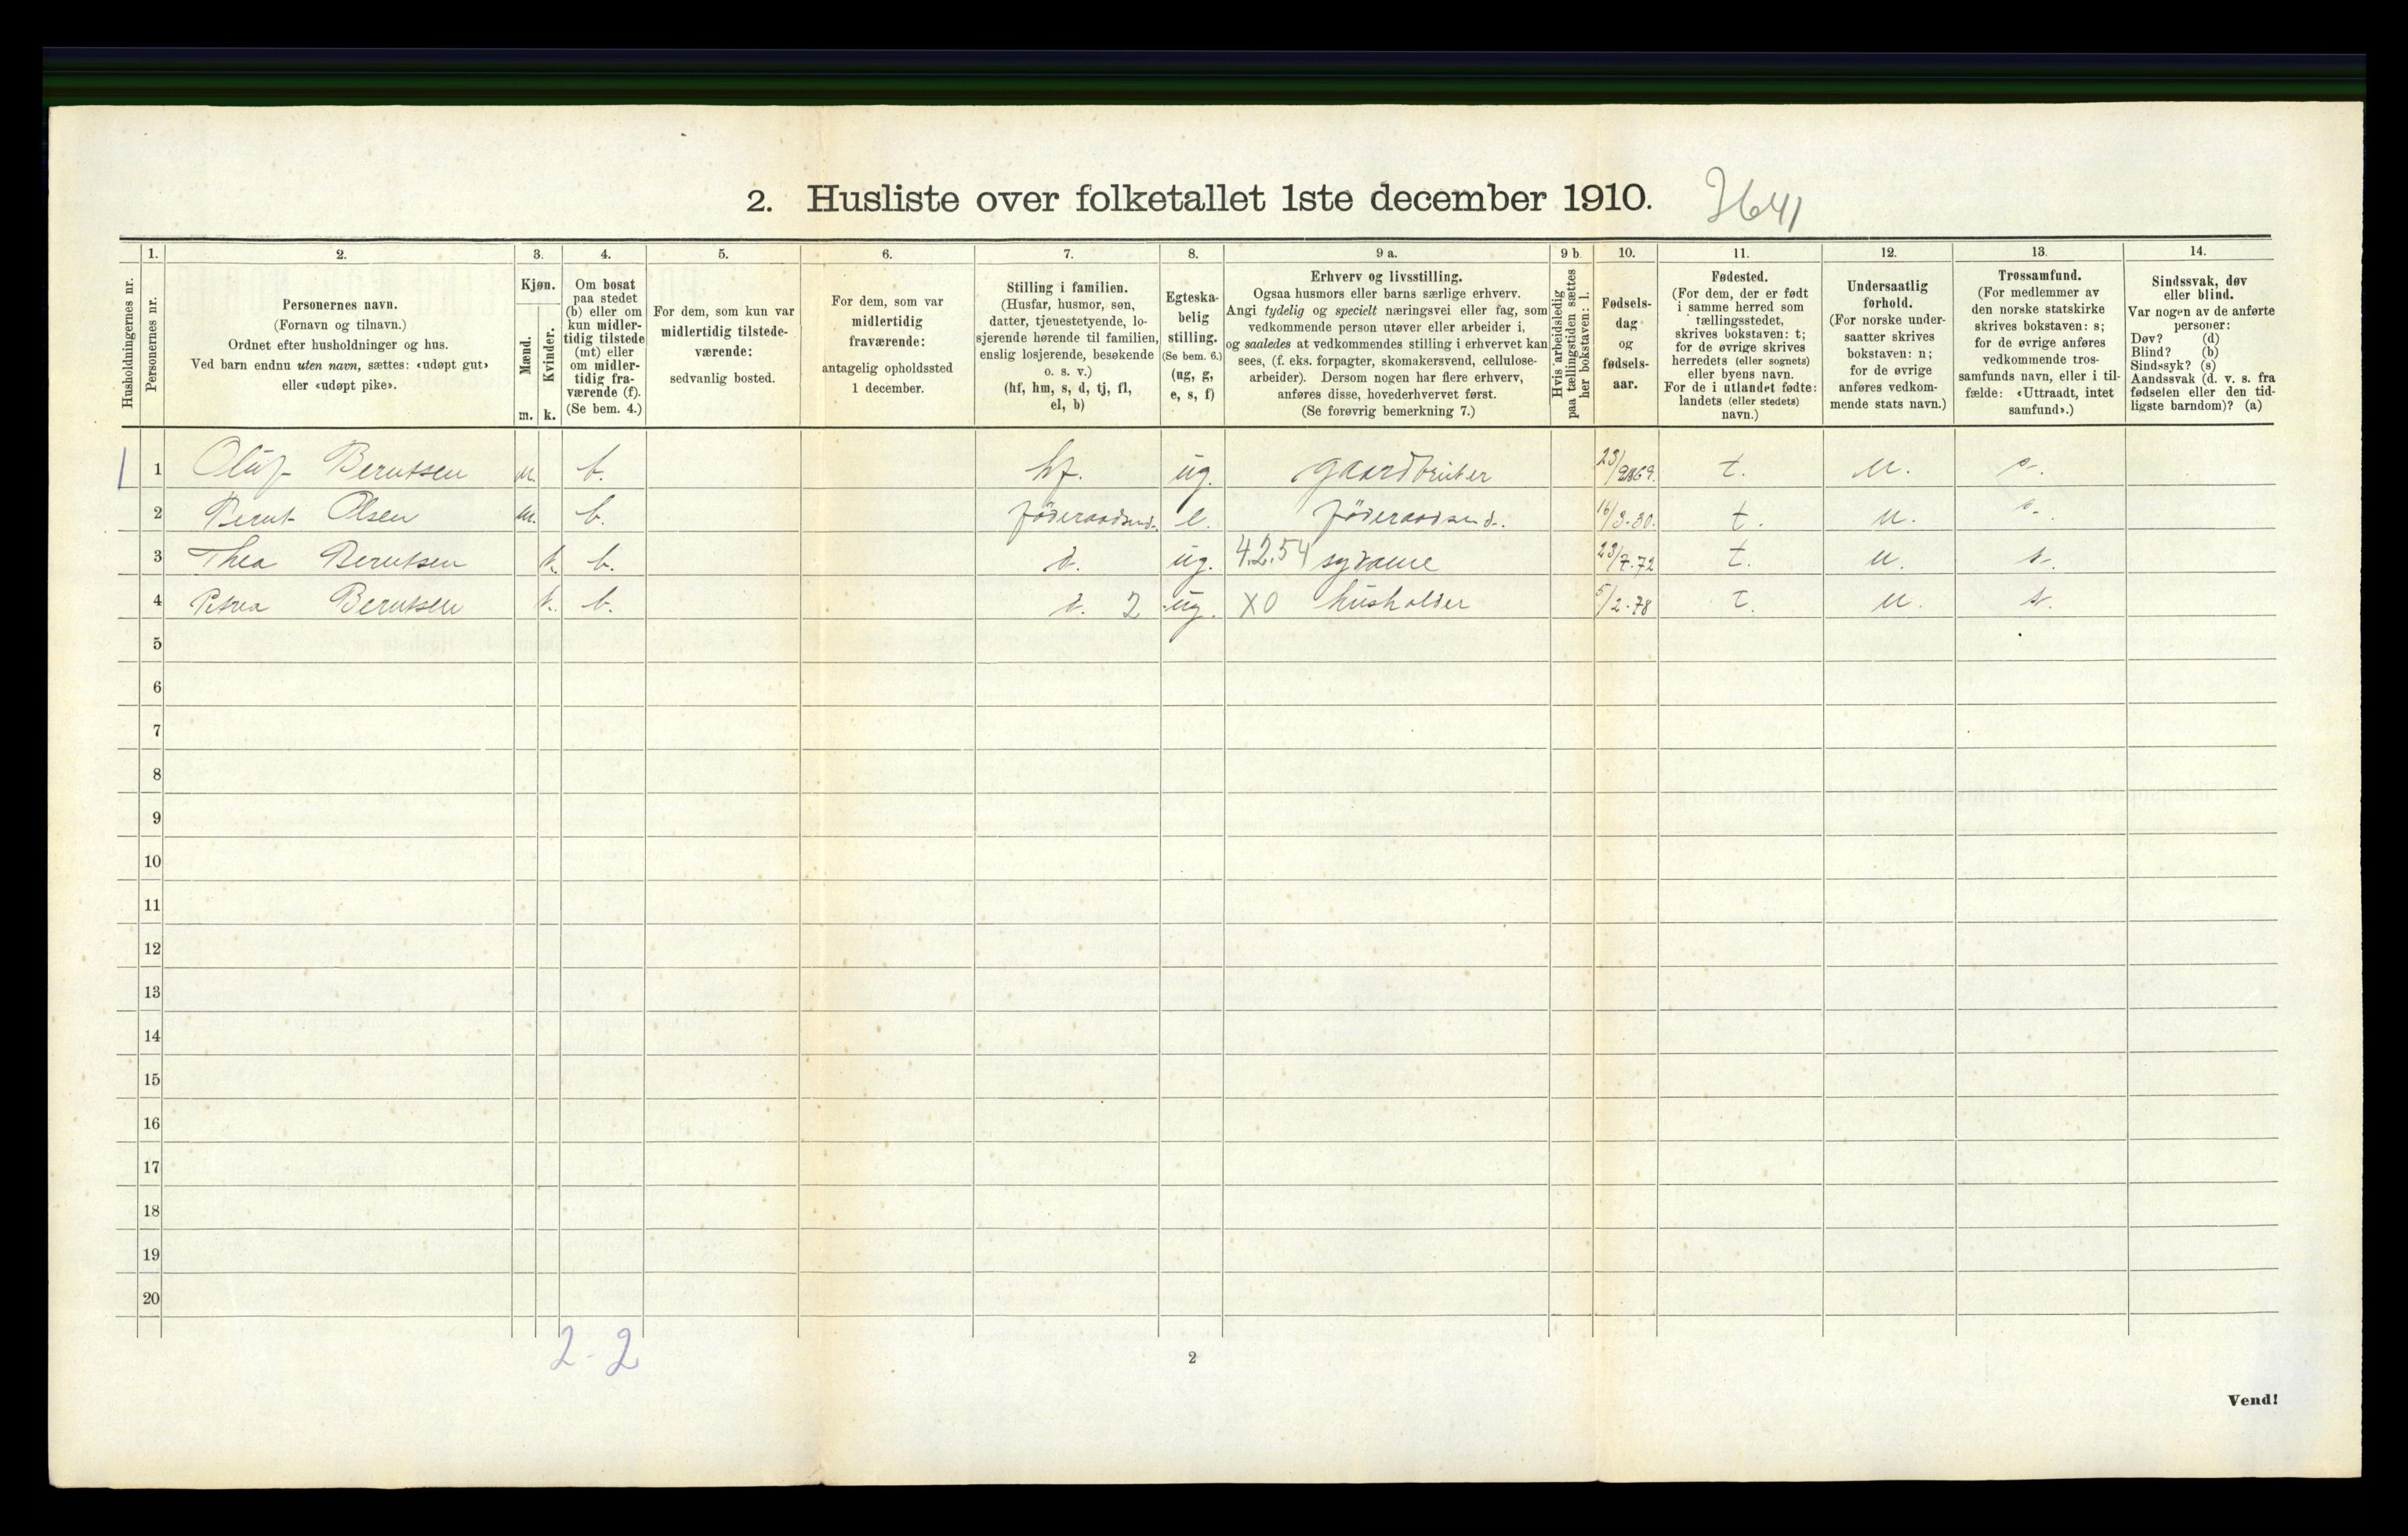 2. Husliste over folketallet 1ste december 1910. 3641
Husholdningernes nr.
1. Personernes nr.
2. Personernes navn.
(Fornavn og tilnavn.)
Ordnet efter husholdninger og hus.
Ved barn endnu uten navn, sættes: «udøpt gut»
eller «udøpt pike».
3. Kjøn.
Mænd. m.
Kvinder. k.
4. Om bosat
paa stedet
(b) eller om
kun midler-
tidig tilstede
(mt) eller
om midler-
tidig fra-
værende (f).
(Se bem. 4.)
5. For dem, som kun var
midlertidig tilstede-
værende:
sedvanlig bosted.
6. For dem, som var
midlertidig
fraværende:
antagelig opholdssted
1 december.
7. Stilling i familien.
(Husfar, husmor, søn,
datter, tjenestetyende, lo-
sjerende hørende til familien,
enslig losjerende, besøkende
o. s. v.)
(hf, hm, s, d, tj, fl,
el, b)
8. Egteska-
belig
stilling.
(Se bem. 6.)
(ug, g,
e, s, f)
9 a. Erhverv og livsstilling.
Ogsaa husmors eller barns særlige erhverv.
Angi tydelig og specielt næringsvei eller fag, som
vedkommende person utøver eller arbeider i,
og saaledes at vedkommendes stilling i erhvervet kan
sees, (f. eks. forpagter, skomakersvend, cellulose-
arbeider). Dersom nogen har flere erhverv,
anføres disse, hovederhvervet først.
(Se forøvrig bemerkning 7.)
9 b. Hvis arbeidsledig
paa tællingstiden sættes
her bokstaven: l.
10. Fødsels-
dag
og
fødsels-
aar.
11. Fødested.
(For dem, der er født
i samme herred som
tællingsstedet,
skrives bokstaven: t;
for de øvrige skrives
herredets (eller sognets)
eller byens navn.
For de i utlandet fødte:
landets (eller stedets)
navn.)
12. Undersaatlig
forhold.
(For norske under-
saatter skrives
bokstaven: n;
for de øvrige
anføres vedkom-
mende stats navn.)
13. Trossamfund.
(For medlemmer av
den norske statskirke
skrives bokstaven: s;
for de øvrige anføres
vedkommende tros-
samfunds navn, eller i til-
fælde: «Uttraadt, intet
samfund».)
14. Sindssvak, døv
eller blind.
Var nogen av de anførte
personer:
Døv? (d)
Blind? (b)
Sindssyk? (s)
Aandssvak (d. v. s. fra
fødselen eller den tid-
ligste barndom)? (a)
1 Oluf Berntsen m. b. hf. ug. gaardbruker t. n. s.
2 Bernt Olsen m. b. föderaadsmd. e. föderaadsmd. 16/3-30. t. n. s.
3 Thea Berntsen k. b. d. ug. 4.2.54 sydame 23/7-72 t. n. s.
4 Petrea Berntsen k. b. d. 2 ug. X0 husholder 5/2-78 t. n. s.
5
6
7
8
9
10
11
12
13
14
15
16
17
18
19
20
2-2
2
Vend!